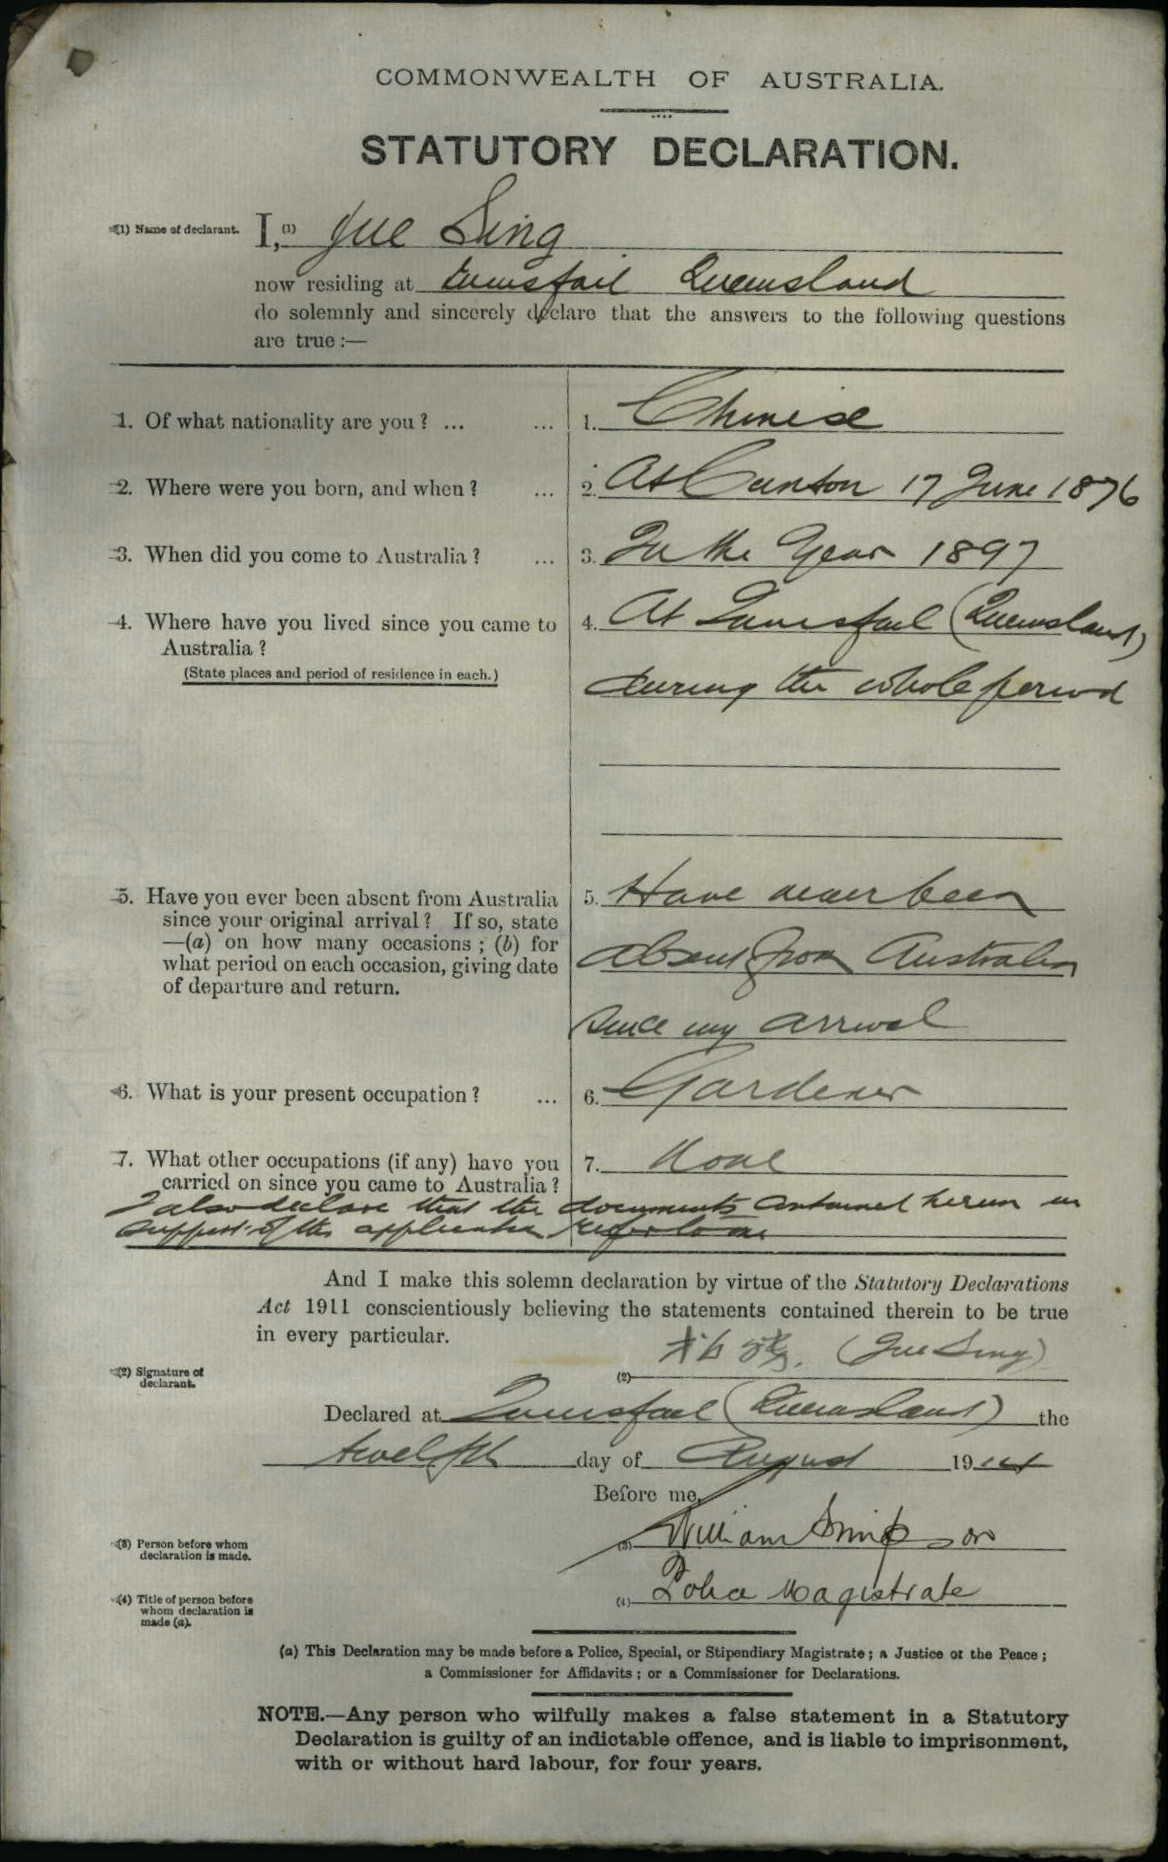 COMMONWEALTH OF AUSTRALIA.
STATUTORY DECLARATION.
(1) Name of declarant. I, (1) Jue Sing
now residing at Innisfail Queensland
do solemnly and sincerely declare that the answers to the following questions
are true :—
1. Of what nationality are you ? ... ... 1. Chinese
2. Where were you born, and when ? ... 2. At Canton 17 June 1876
3. When did you come to Australia ? ... 3. In the Year 1897
4. Where have you lived since you came to 4. At Innisfail (Queensland)
Australia ?
(State places and period of residence in each.)
during the whole period
5. Have you ever been absent from Australia 5. Have never been
since your original arrival ? If so, state
—(a) on how many occasions ; (b) for
what period on each occasion, giving date absent from Australia
of departure and return.
since my arrival
6. What is your present occupation ? ... 6. Gardener
7. What other occupations (if any) have you 7. None
carried on since you came to Australia ?
I also declare that the documents contained herein in
support of this application refer to me
And I make this solemn declaration by virtue of the Statutory Declarations
Act 1911 conscientiously believing the statements contained therein to be true
in every particular.
(2) Signature of declarant. (2) (Jue Sing)
Declared at Innisfail (Queensland) the
twelfth day of August 1914
Before me,
(3) Person before whom declaration is made. (3) William Simpson
(4) Title of person before whom declaration is made (a). (4) Police Magistrate
(a) This Declaration may be made before a Police, Special, or Stipendiary Magistrate ; a Justice of the Peace ;
a Commissioner for Affidavits ; or a Commissioner for Declarations.
NOTE.—Any person who wilfully makes a false statement in a Statutory
Declaration is guilty of an indictable offence, and is liable to imprisonment,
with or without hard labour, for four years.